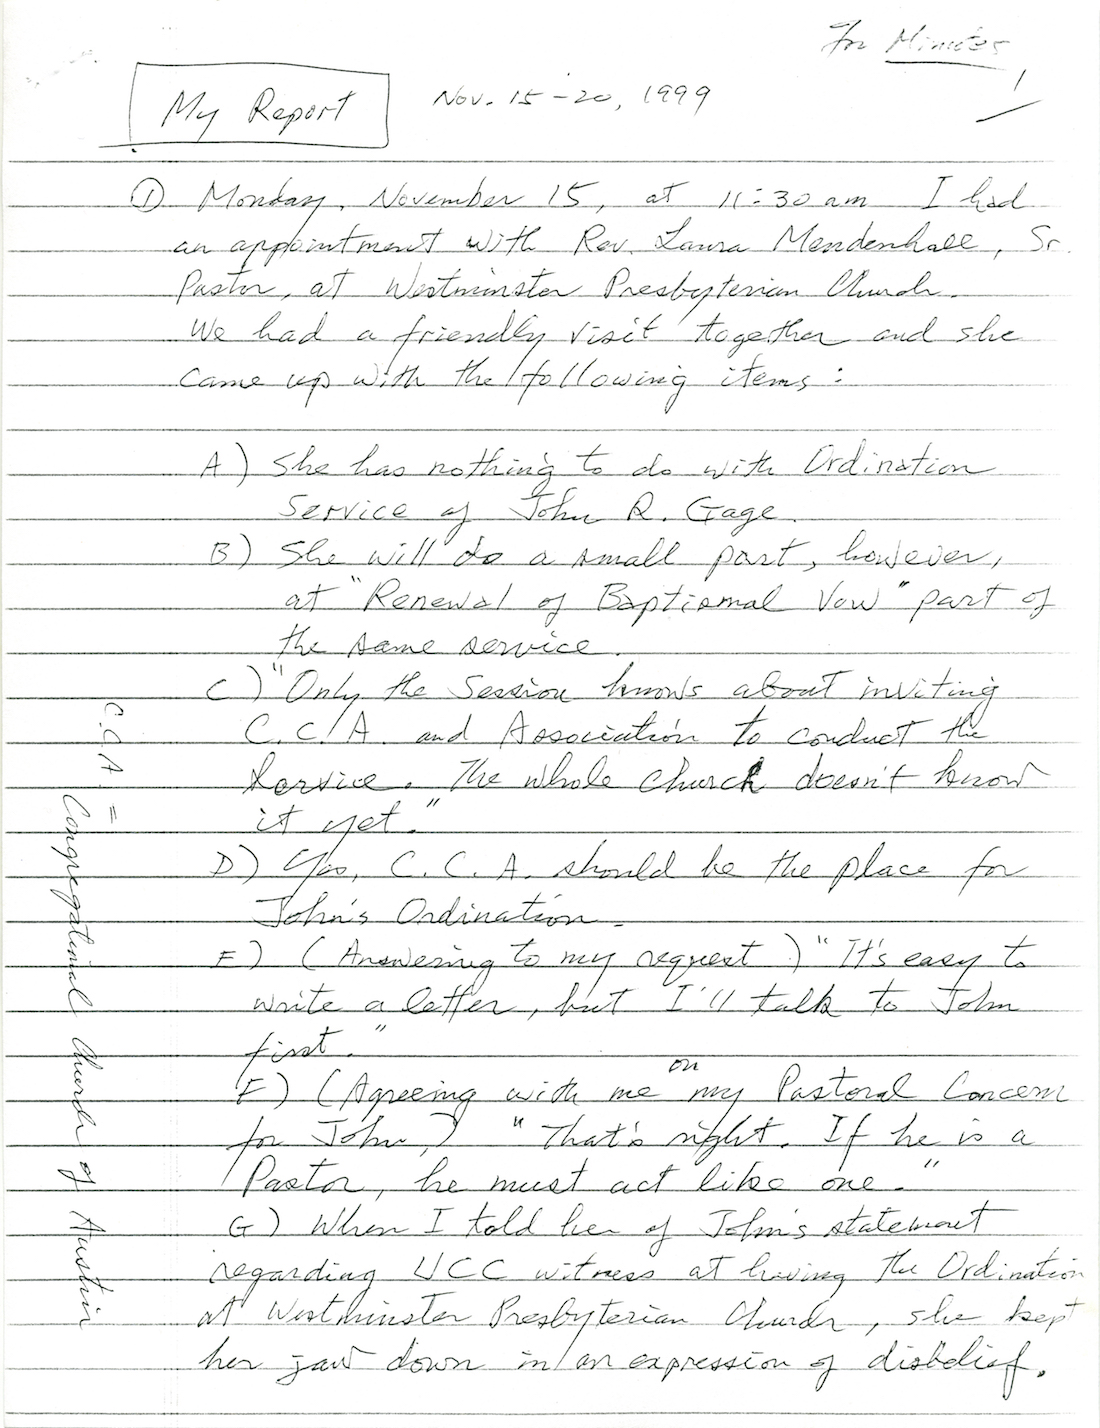 For Minutes
My Report
Nov. 15-20, 1999
1
① Monday, November 15, at 11:30 am I had
an appointment with Rev. Laura Mendenhall, Sr.
Pastor, at Westminster Presbyterian Church.
We had a friendly visit together and she
came up with the following items:
A) She has nothing to do with Ordination
Service of John R. Gage.
B) She will do a small part, however,
at "Renewal of Baptismal Vow" part of
the same service.
C) "Only the Session knows about inviting
C.C.A. and Association to conduct the
service. The whole church doesn't know
it yet."
D) Yes, C.C.A. should be the place for
John's Ordination.
E) (Answering to my request) "It's easy to
write a letter, but I'll talk to John
first."
F) (Agreeing with me on my Pastoral Concern
for John,) "That's right. If he is a
Pastor, he must act like one."
G) When I told her of John's statement
regarding UCC witness at having the Ordination
at Westminster Presbyterian Church, she kept
her jaw down in an expression of disbelief.
C.C.A. = Congregational Church of Austin